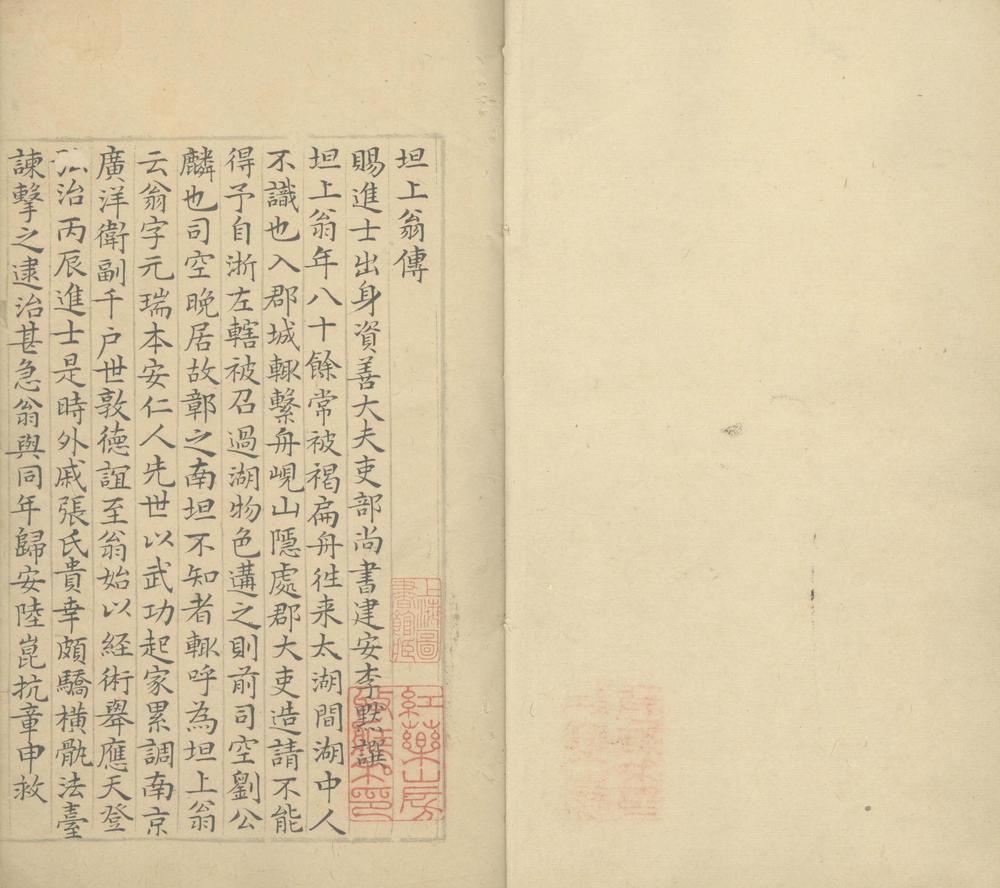 坦上翁傳
賜進士出身資善大夫吏部尚書建安李默譔
坦上翁年八十餘常被褐扁舟徃来太湖間湖中人
不識也入郡城輙繫舟峴山隱處郡大吏造請不能
得予自浙左轄被召過湖物色遘之則前司空劉公
麟也司空晚居故鄣之南坦不知者輙呼為坦上翁
云翁字元瑞本安仁人先世以武功起家累調南京
廣洋衛副千户世敦德誼至翁始以経術舉應天登
治丙辰進士是時外戚張氏貴幸頗驕橫骩法臺
諫擊之逮治甚急翁與同年歸安陸崑抗章申救
上海圖書館藏
紅藥山房